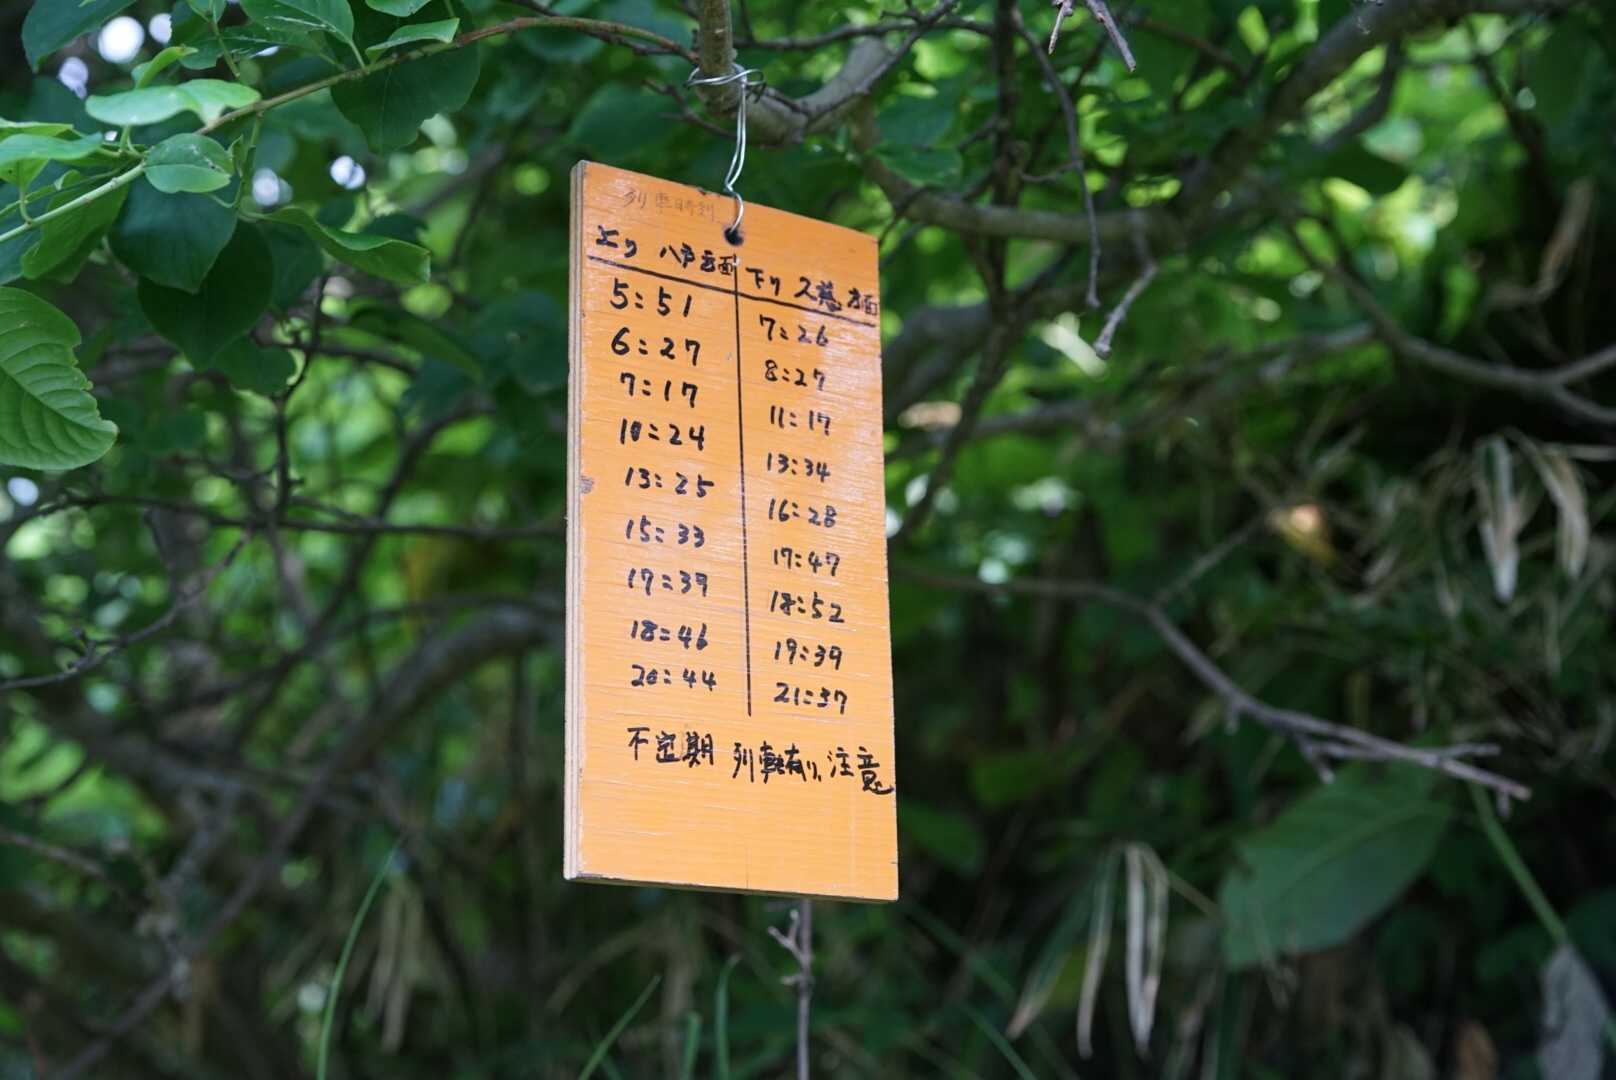 列車時刻
上り 八戸方面 下り 久慈方面
5:51 7:26
6:27 8:27
7:17 11:17
10:24 13:34
13:25 16:28
15:33 17:47
17:39 18:52
18:46 19:39
20:44 21:37
不定期 列車有り、注意